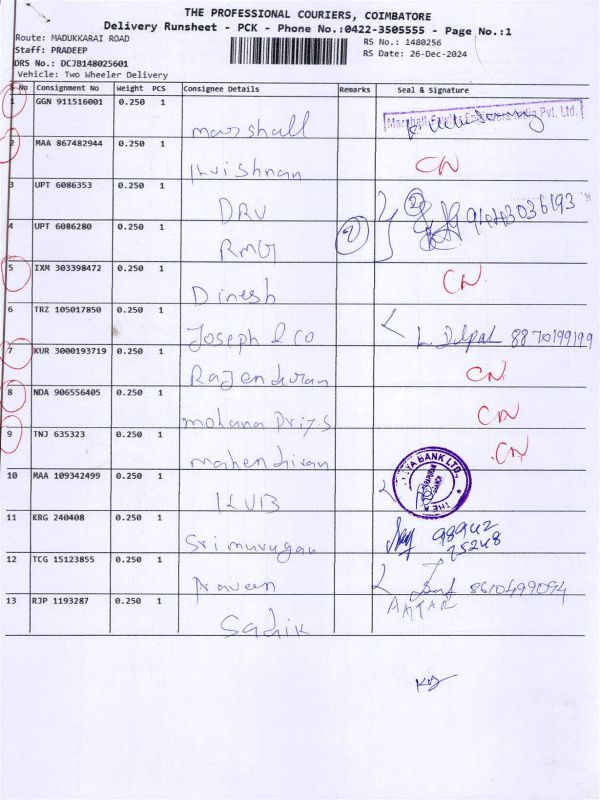 THE PROFESSIONAL COURIERS, COIMBATORE
Delivery Runsheet - PCK - Phone No.:0422-3505555 - Page No.:1
Route: MADUKKARAI ROAD
RS No.: 1480256
Staff: PRADEEP
RS Date: 26-Dec-2024
DRS No.: DCJB148025601
Vehicle: Two Wheeler Delivery
No Consignment No Weight PCS Consignee Details Remarks Seal & Signature
1 GGN 911516001 0.250 1 Marshall
2 MAA 867482944 0.250 1 Krishnan CN
3 UPT 6086353 0.250 1 DRV
4 UPT 6086280 0.250 1 RMG
5 IXM 303398472 0.250 1 Dinesh CN
6 TRZ 105017850 0.250 1 Joseph & co 8870199199
7 KUR 3000193719 0.250 1 Rajendran CN
8 NDA 906556405 0.250 1 mohana Priya.S CN
9 TNJ 635323 0.250 1 mahendiran CN
10 MAA 109342499 0.250 1 KVB
11 KRG 240408 0.250 1 Srimurugan 98942
75248
12 TCG 15123855 0.250 1 Praveen 8610499094
13 RJP 1193287 0.250 1 Sadik